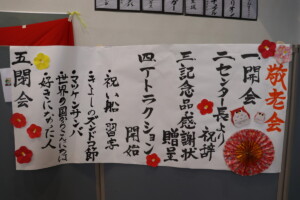 敬老会
一開会
二センター長より
祝辞
三記念品感謝状
贈呈
四アトラクション
開始
・祝い船・留木
・きよしのズンドコ節
・マツケンサンバ
・世界の国からこんにちは
・好きになった人
五閉会